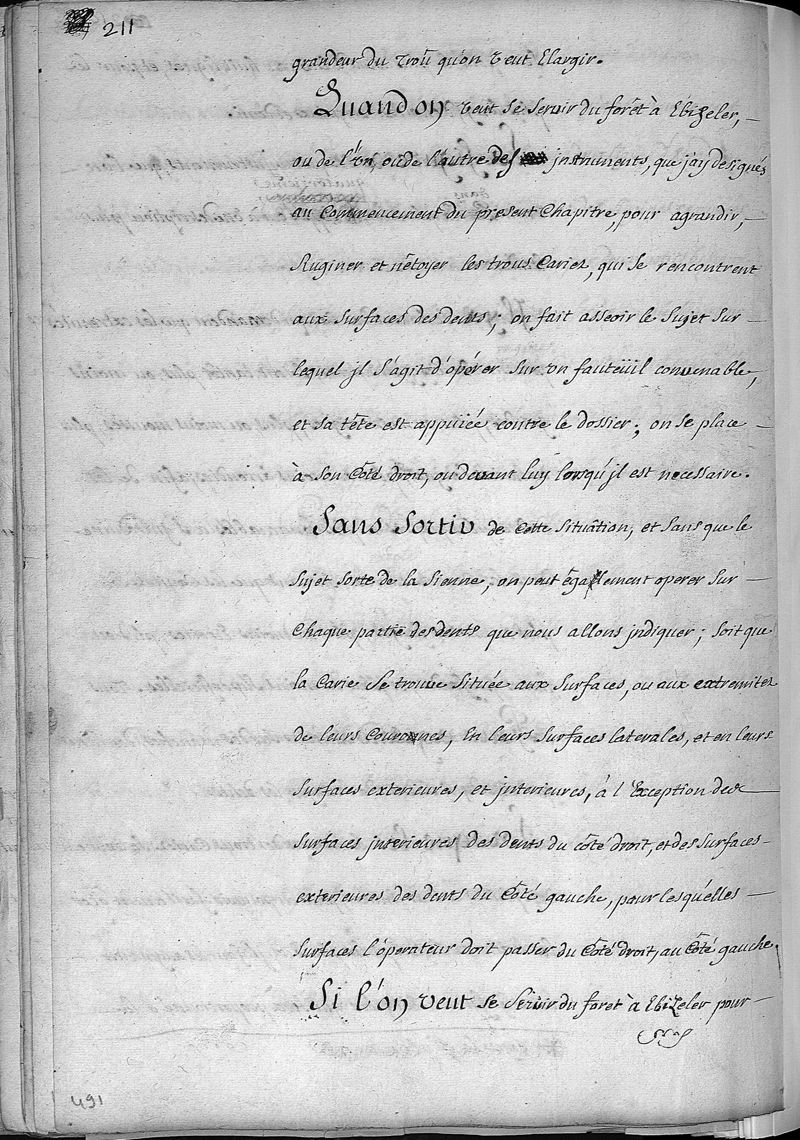 211
grandeur du troû qu'on veut Elargir.
Quand on veut se servir du forêt à Ebizeler,
ou de l'un, ou de l'autre des jnstruments, que j'ay designés
au Commencement du present Chapitre, pour agrandir,
Ruginer et nêtoyer les trous Cariez, qui se rencontrent
aux surfaces des dents; on fait asseoir le sujet sur
lequel jl s'agit d'opérer sur un fauteüil convenable,
et sa tête est appuiée contre le dossier; on se place
à son Côté droit, ou devant luy lorsqu'jl est necessaire.
Sans sortir de Cette situâtion, et sans que le
sujet sorte de la sienne, on peut êgallement operer sur
Chaque partie des dents que nous allons jndiquer; soit que
la Carie se trouve située aux surfaces, ou aux extremitez
de leurs Couronnes, En leurs surfaces laterales, et en leurs
surfaces exterieures, et jnterieures, à l'Exception des
surfaces jnterieures des dents du côté droit, et des surfaces
exterieures des dents du Côté gauche, pour lesquelles
surfaces l'ôperateur doit passer du Côté droit, au Côté gauche.
Si l'on veut se servir du foret à Ebizeler pour
491